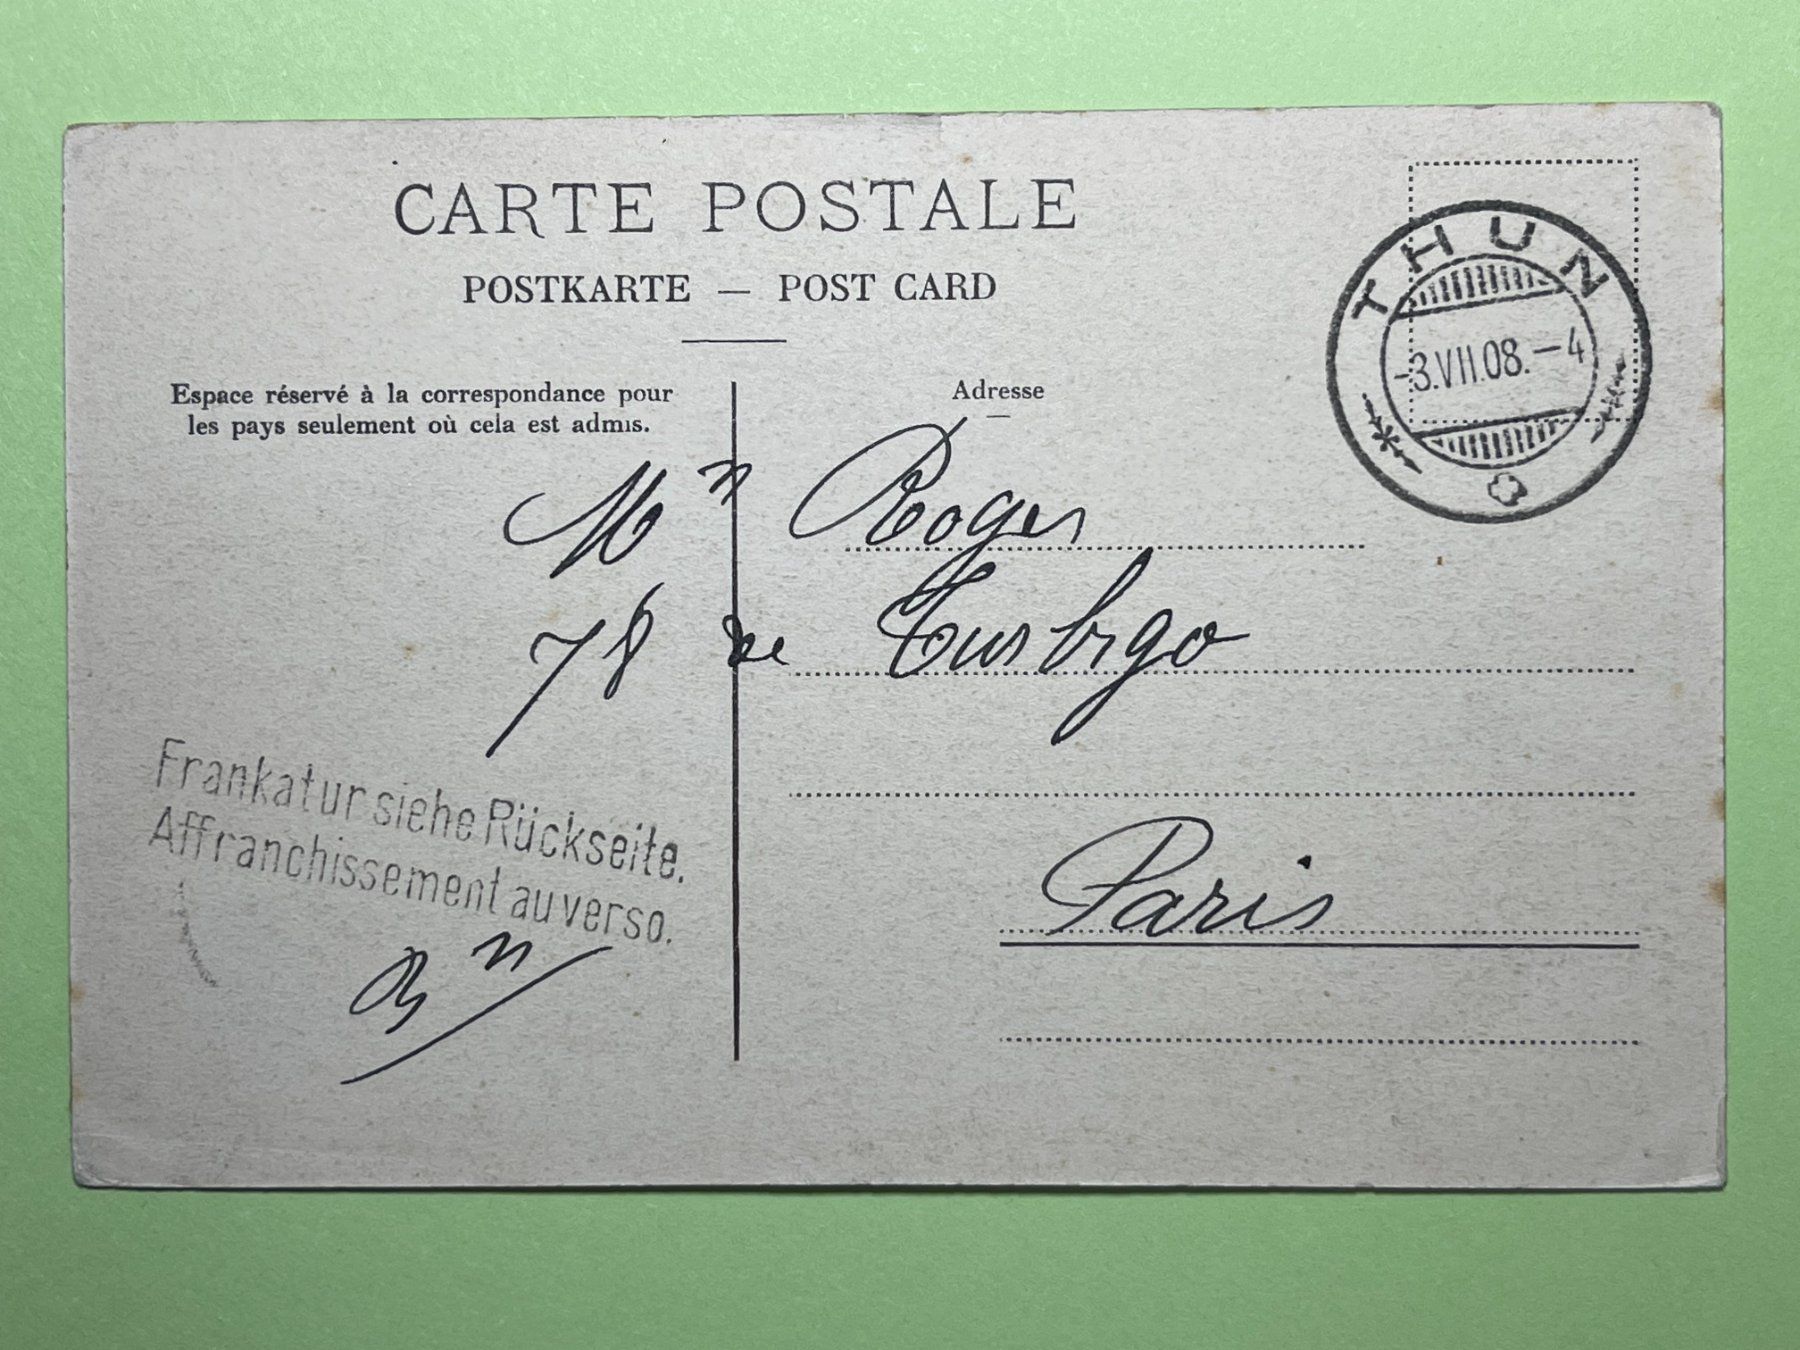 CARTE POSTALE
POSTKARTE — POST CARD
Espace réservé à la correspondance pour
les pays seulement où cela est admis.
Adresse
THUN
-3.VII.08.-4
Mr Roger
78 de Turbigo
Paris
Frankatur siehe Rückseite.
Affranchissement au verso.